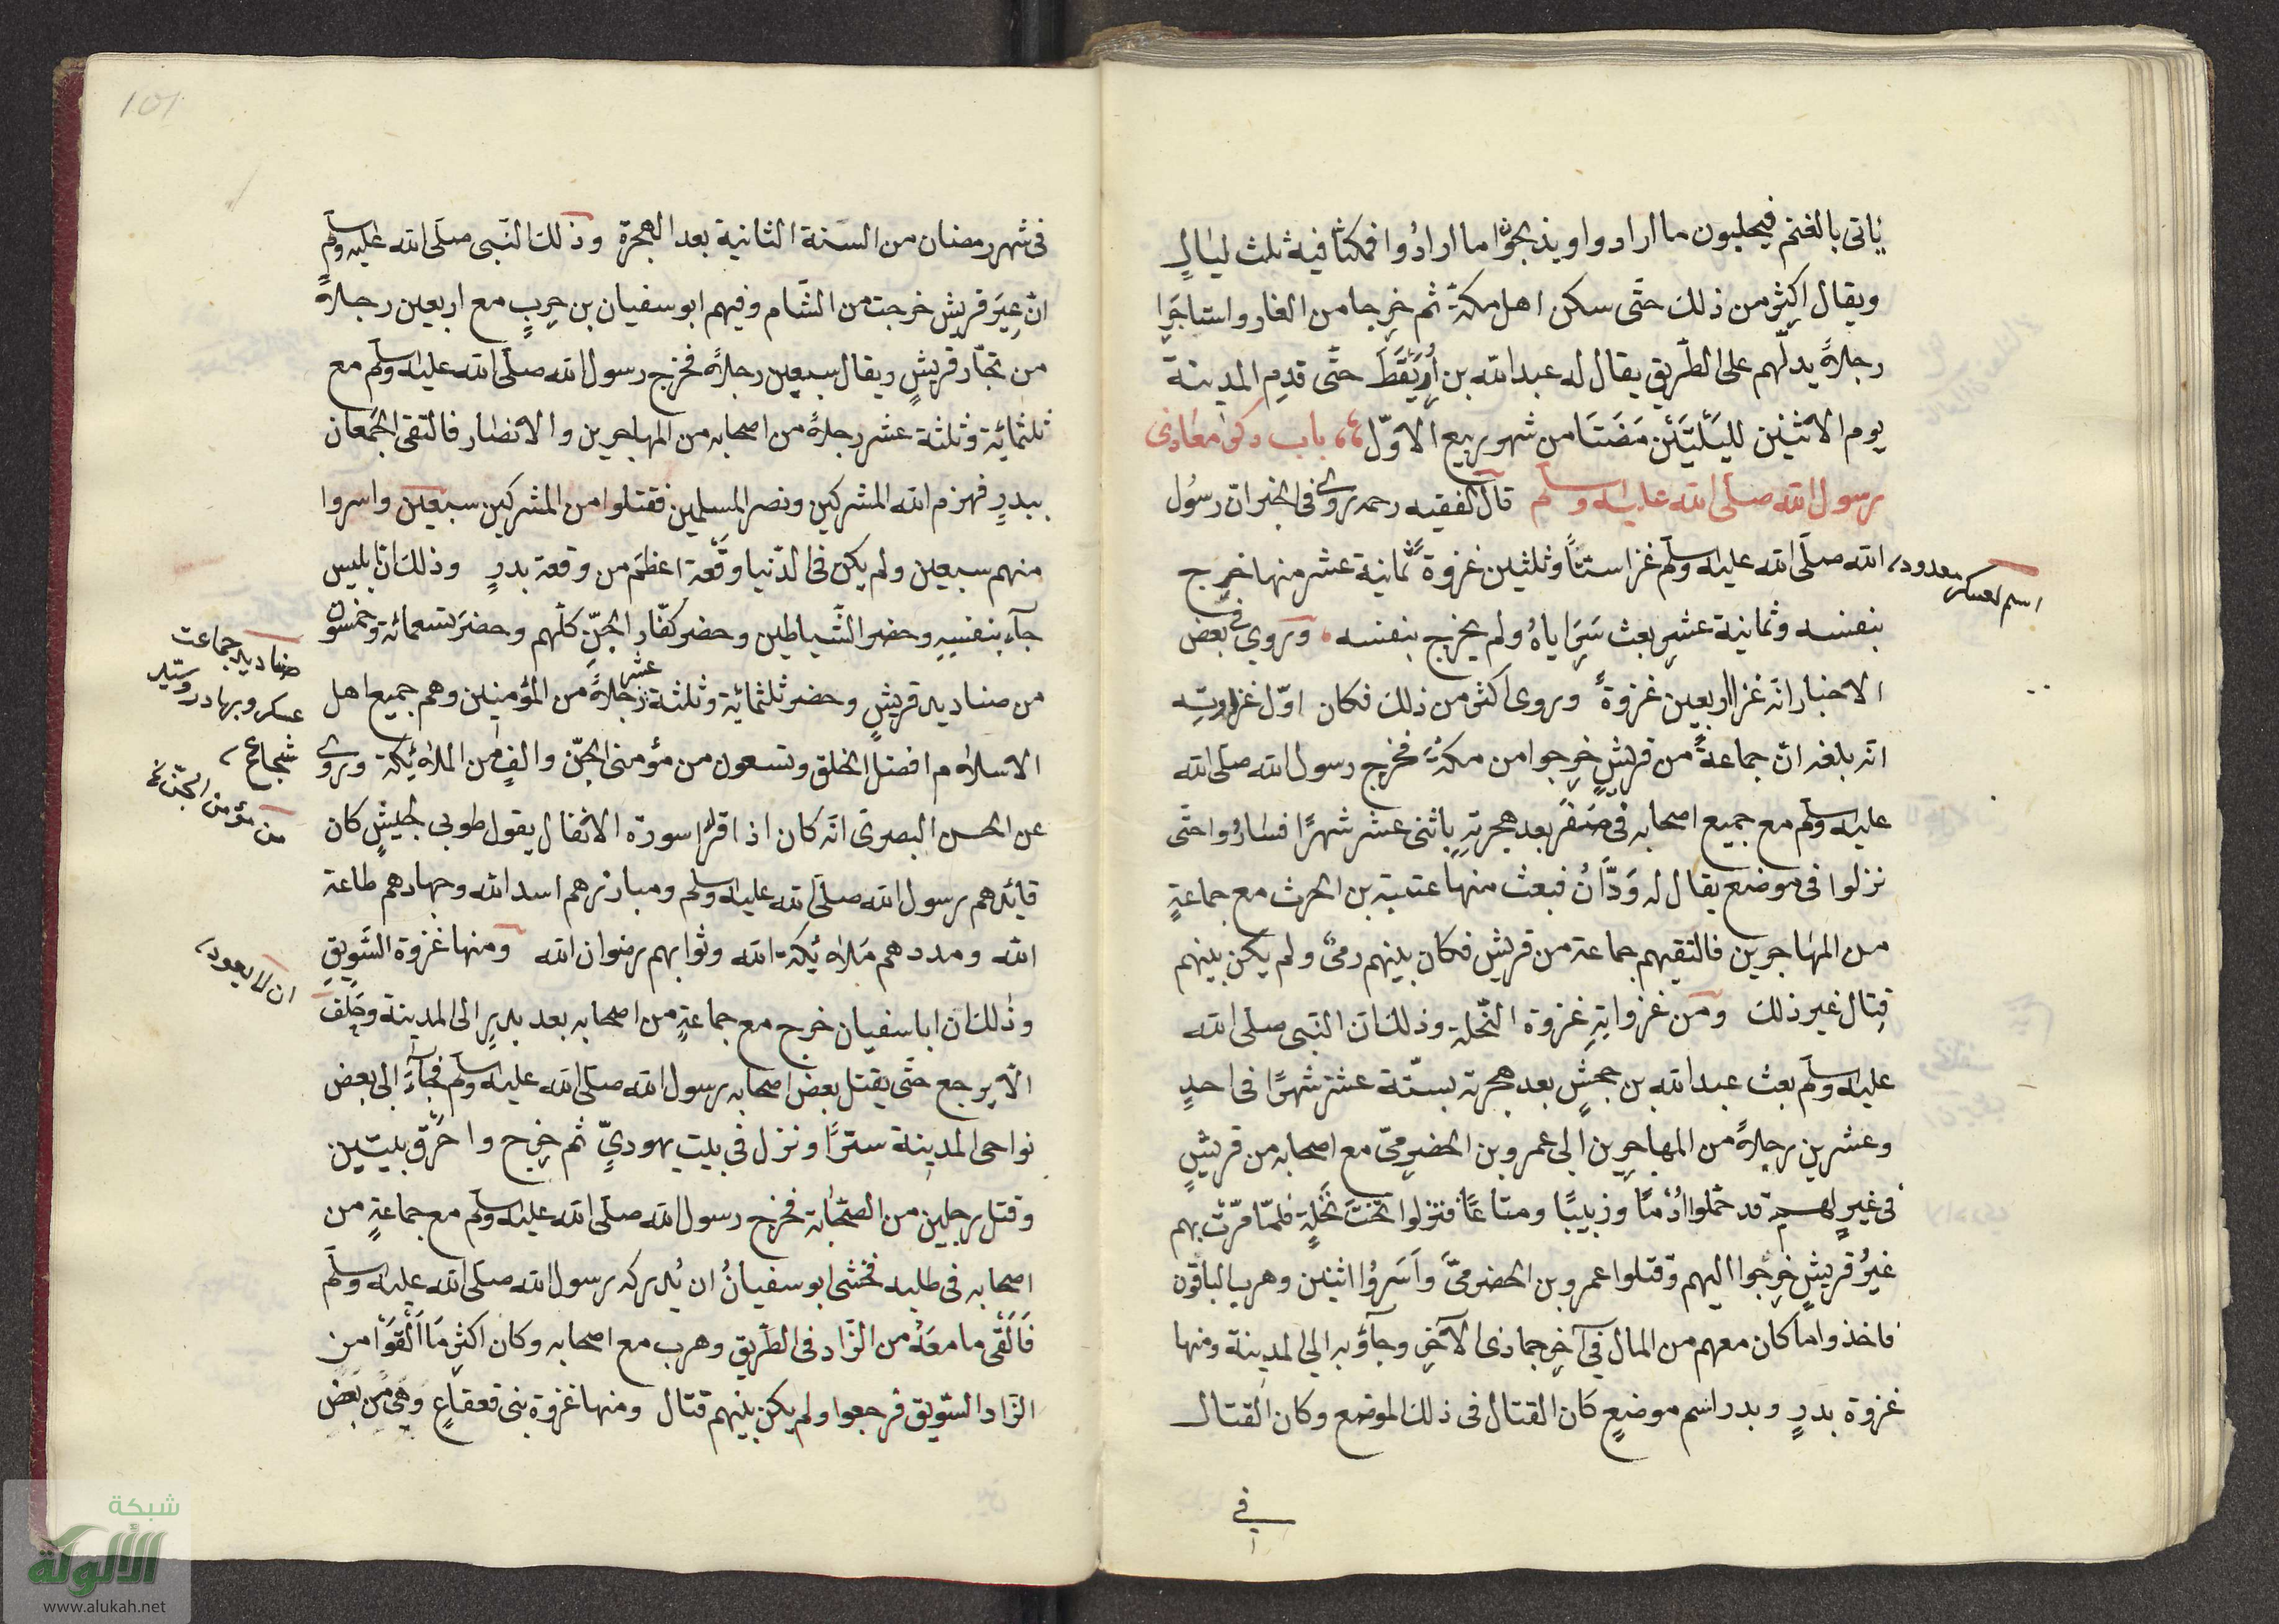 ياتى بالغنم فيحلبون ما ارادوا ويذبحوا ما ارادُوا فمكثا فيه ثلث ليالٍ
ويقال اكثر من ذلك حتّى سكن اهل مكةَ ثم خرجا من الغار واستاجَرا
رجلاً يدلّهم على الطّريق يقال له عبد الله بن اُرَيْقَطَ حتّى قدم المدينة
يوم الاثنين لليَلَتَيْنِ مَضَتَا من شهر ربيع الاوّل باب ذكر مغازى
رسول الله صلى الله عليه وسلم قال الفقيه رحمه روى فى الخبر ان رسُول
الله صلّى الله عليه وسلّم غزا ستّاً وثلثين غزوةً ثمانية عشر منها خرج
بنفسه وثمانية عشر بعث سَرَاياهُ ولم يخرج بنفسه وروي فى بعض
الاخبار انّه غزا اربعين غزوةً وروى اكثر من ذلك فكان اوّل غزاوته
انّه بلغه انّ جماعةً من قريشٍ خرجوا من مكةَ فخرج رسول الله صلى الله
عليه وسلّم مع جميع اصحابه فى صَفَر بعد هجرته باثنى عشر شهرًا فسارُوا حتّى
نزلوا فى موضع يقال له وَدَّانُ فبعث منها عتبة بن الحرث مع جماعةٍ
من المهاجرين فالتقيهم جماعة من قريش فكان بينهم رمىٌ ولم يكن بينهم
قِتال غير ذلك ومن غزواته غزوة النّخلة وذلك انّ النبى صلى الله
عليه وسلّم بعث عبد الله بن جحشٍ بعد هجرته بستّة عشر شهرًا فى احدٍ
وعشرين رجلاً من المهاجرين الى عمرو بن الحضرمىّ مع اصحابه من قريشٍ
فى غيرٍ لهم قد حملوا اُدْمًا وزبيبًا ومتاعًا فنزلوا تحتَ نَخْلةٍ فلمّا مَرّتْ بهم
غيرُ قريشٍ خرجوا اليهم وقتلوا عمرو بن الحضرمىَّ وَاَسَرُوْا اثنين وهرب الباقون
فاخذوا ما كان معهم من المال فى آخر جماذى الآخر وجآؤ به الى المدينة ومنها
غزوة بدرٍ وبدر اسم موضعٍ كان القتال فى ذلك الموضع وكان القتال
فى
اسم لعسكر معدود
101
فى شهر رمضان من السنة الثانية بعد الهجرة وذلك النّبى صلّى الله عليه وسلّم
انّ عِيَر قريش خرجت من الشّام وفيهم ابو سفيان بن حربٍ مع اربعين رجلاً
من تجّار قريشٍ ويقال سبعين رجلاً فخرج رسول الله صلّى الله عليه وسلّم مع
ثلثمائة وثلثة عشر رجلاً من اصحابه من المهاجرين والانصار فالتقى الجَمْعان
ببدرٍ فهزم الله المشركين ونصر المسلمين فقتلوا من المشركين سبعين واسروا
منهم سبعين ولم يكن فى الدّنيا وَقْعة اعظمَ من وقعة بدرٍ وذلك انّ ابليس
جآء بنفسِهِ وحضر الشّياطين وحضر كفّار الجنّ كلّهم وحضرَ تسعمائة وخمسون
من صناديد قريشٍ وحضر ثلثمائة وثلثة عشر رجلاً من المؤمنين وهم جميع اهل
الاسلام افضل الخلق وتسعون من مؤمنى الجنّ والفٍ من الملائكة وروى
عن الحسن البصرىّ انّه كان اذا قرأ سورة الانفال يقول طوبى لجيشٍ كان
قائدهم رسول الله صلّى الله عليه وسلم ومبارزهم اسد الله وجهادهم طاعة
الله ومددهم مَلائكة الله وثوابهم رضوان الله ومنها غزوة السَّوِيقِ
وذلك ان ابا سفيان خرج مع جماعةٍ من اصحابه بعد بدرٍ الى المدينة وحَلف
الّا يرجع حتّى يقتل بعض اصحاب رسول الله صلّى الله عليه وسلّم فجآءَ الى بعض
نواحى المدينة سترًا ونزل فى بيت يهودىٍّ ثم خرج واحرَق بيتين
وقتل رجلين من الصّحابة فخرج رسول الله صلّى الله عليه وسلّم مع جماعةٍ من
اصحابه فى طلبه فخشى ابو سفيانُ ان يُدركه رسول الله صلّى الله عليه وسلّم
فَاَلْقَى ما معَهُ من الزّاد فى الطّريق وهرب مع اصحابه وكان اكثر مَا اَلْقَوْا من
الزّاد السّويق فرجعوا ولم يكن بينهم قتال ومنها غزوة بنى قعقاعٍ وهى من بَعْض
صناديد جماعت
عسكر وبهادر وسيد
شجاع
من مؤمن الجنّ
ان لا يعود
شبكة
الألوكة
www.alukah.net